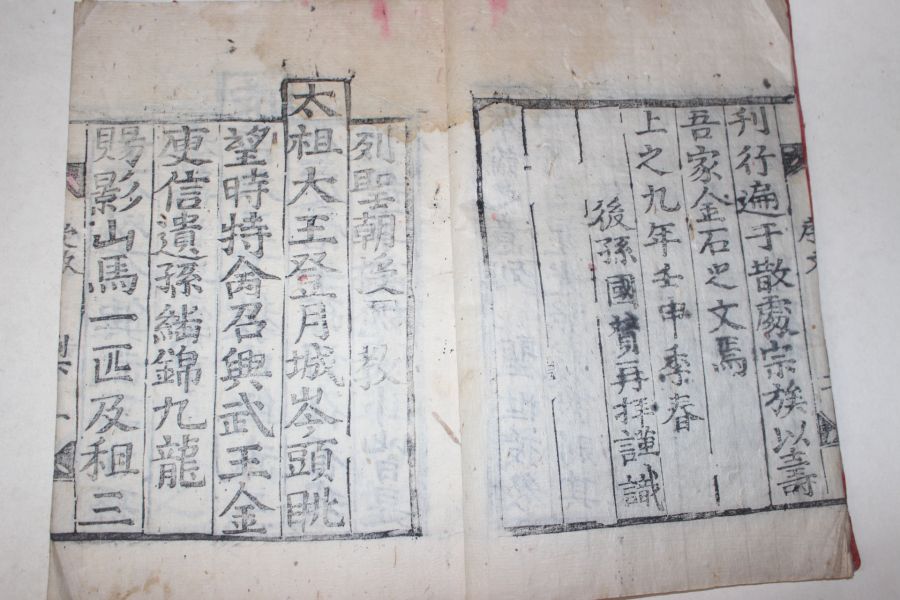 刊行遍于散處宗族以壽
吾家金石之文焉
上之九年壬申季春
後孫國賛再拜謹識
序文
列聖朝後 教
太祖大王登月城岑頭眺
望時特命召興武王金
庾信遺孫繙錦九龍
賜影山馬一匹及租三